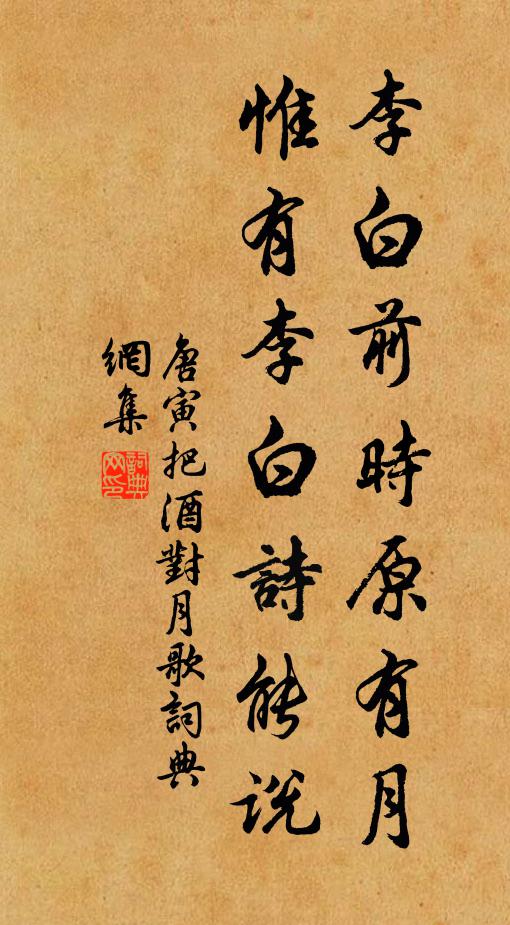 李白前時原有月
惟有李白詩能説
唐寅把酒對月歌詞典
網集
詞典
網印